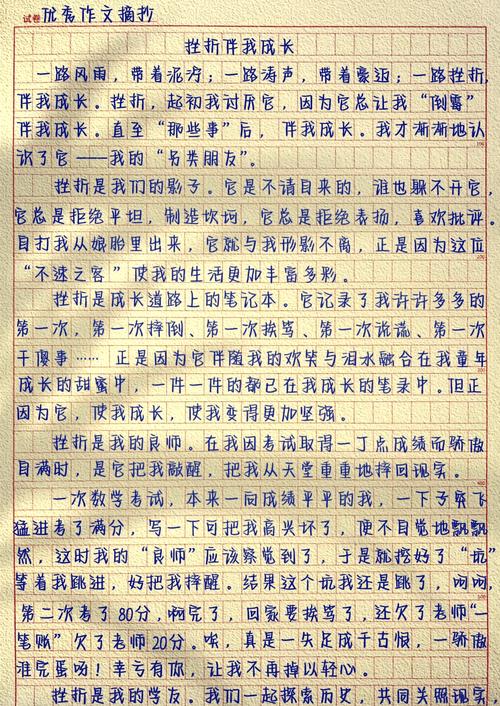 试卷优秀作文摘抄
挫折伴我成长
一路风雨，带着泥泞；一路涛声，带着豪迈；一路挫折，
伴我成长。挫折，起初我讨厌它，因为它总让我“倒霉”
伴我成长。直至“那些事”后，伴我成长。我才渐渐地认
识了它——我的“另类朋友”。
挫折是我们的影子。它是不请自来的，谁也躲不开它，
它总是拒绝平坦，制造坎坷，它总是拒绝表扬，喜欢批评。
自打我从娘胎里出来，它就与我形影不离，正是因为这位
“不速之客”使我的生活更加丰富多彩。
挫折是成长道路上的笔记本。它记录了我许许多多的
第一次，第一次摔倒、第一次挨骂、第一次说谎、第一次
干傻事……正是因为它伴随我的欢笑与泪水融合在我童年
成长的甜蜜中，一件一件的都已在我成长的笔录中。但正
因为它，使我成长，使我变得更加坚强。
挫折是我的良师。在我因考试取得一丁点成绩而骄傲
自满时，是它把我敲醒，把我从天堂重重地摔回现实。
一次数学考试，本来一向成绩平平的我，一下子突飞
猛进考了满分，写一下可把我高兴坏了，便不自觉地飘飘
然，这时我的“良师”应该察觉到了，于是就挖好了“坑”
等着我跳进，好把我摔醒。结果这个坑我还是跳了，呵呵，
第二次考了80分，啊完了，回家要挨骂了，还欠了老师“一
笔账”欠了老师20分。唉，真是一失足成千古恨，一骄傲
准完蛋哟！幸亏有你，让我不再掉以轻心。
挫折是我的学友。我们一起探索历史，共同关照现实，